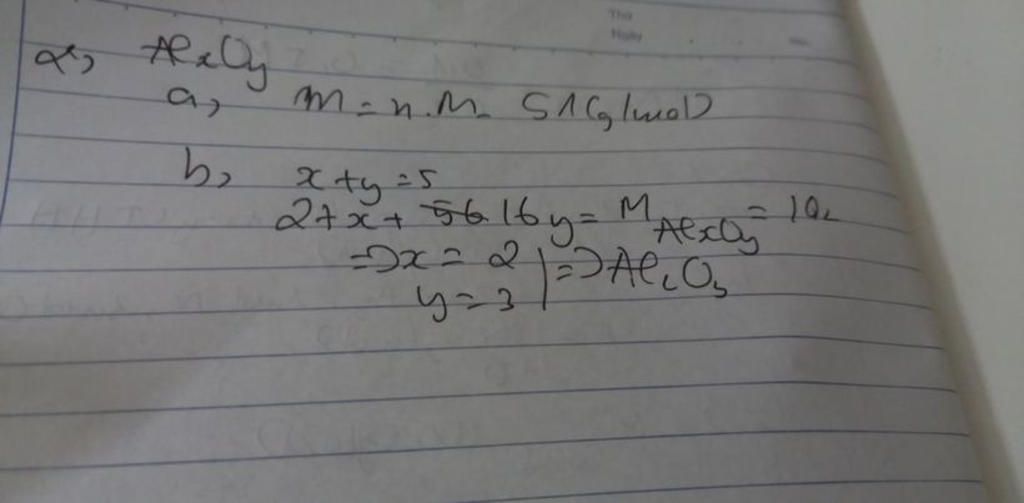 Thứ
Ngày
2, AlxOy
a, m = n.M = 51(g/mol)
b, x+y=5
27x + 56 16y = M AlxOy = 102
=> x = 2
y = 3 | => Al2O3